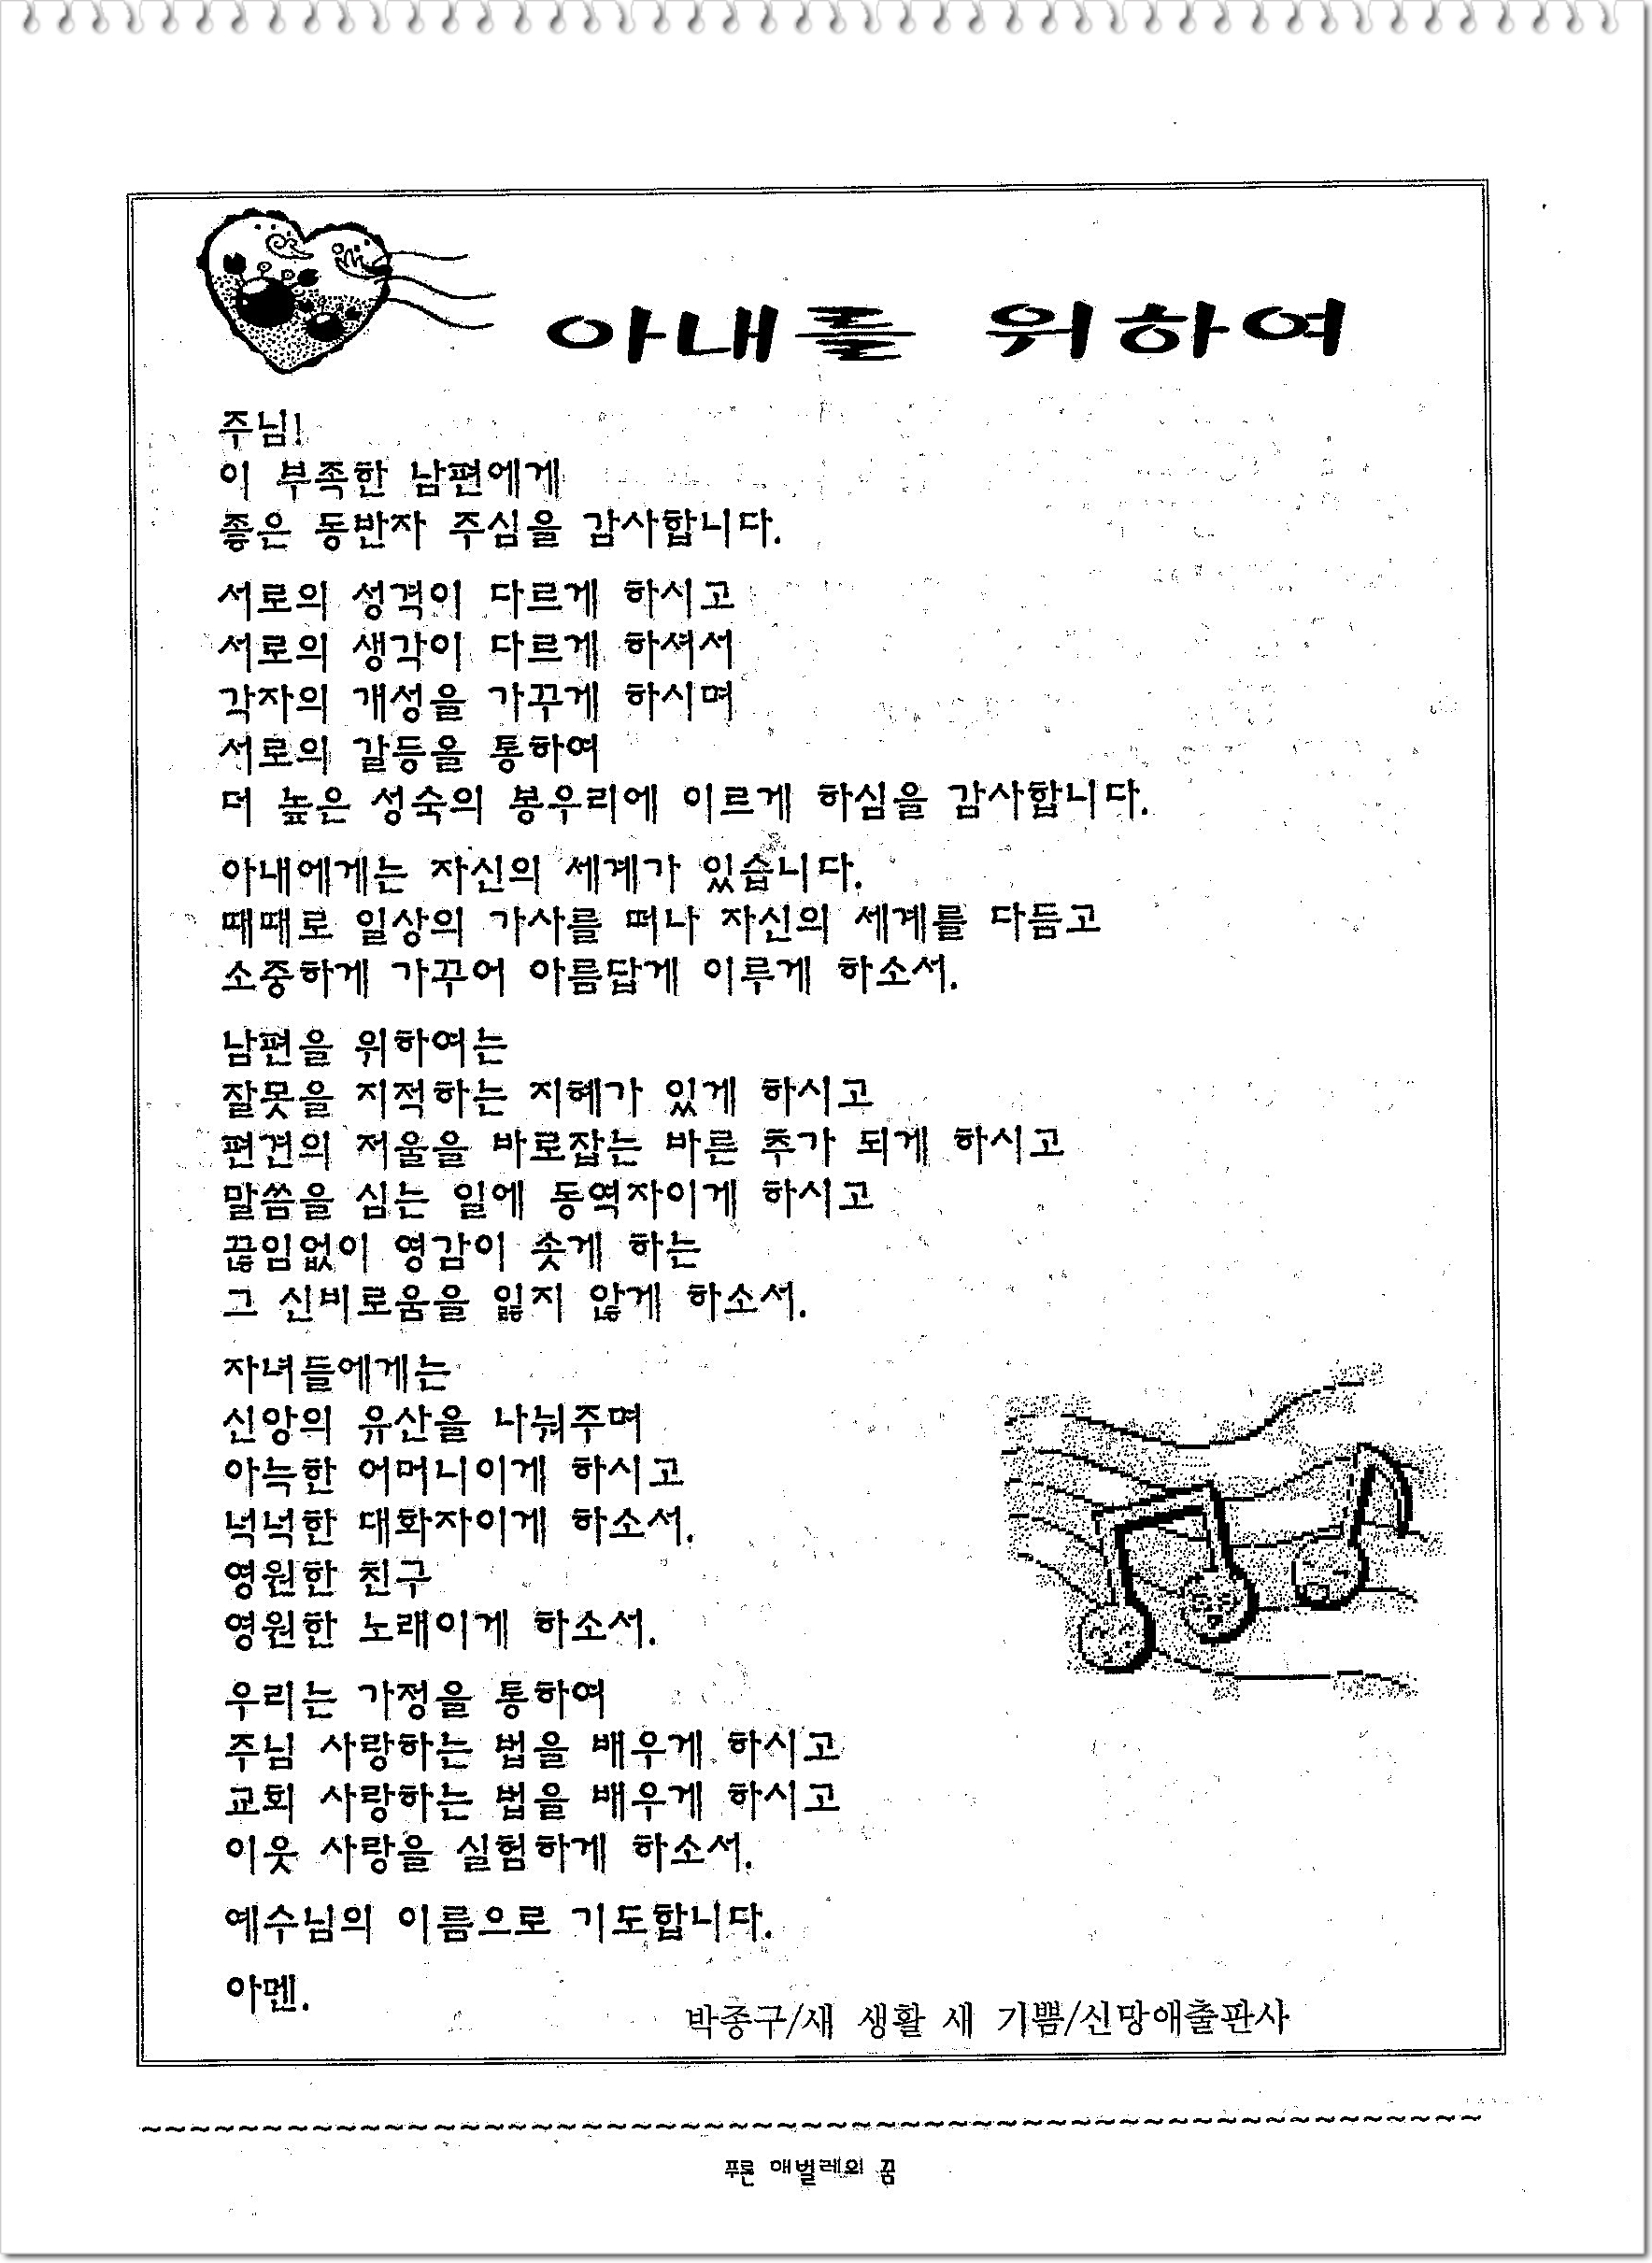 아내를 위하여
주님!
이 부족한 남편에게
좋은 동반자 주심을 감사합니다.
서로의 성격이 다르게 하시고
서로의 생각이 다르게 하셔서
각자의 개성을 가꾸게 하시며
서로의 갈등을 통하여
더 높은 성숙의 봉우리에 이르게 하심을 감사합니다.
아내에게는 자신의 세계가 있습니다.
때때로 일상의 가사를 떠나 자신의 세계를 다듬고
소중하게 가꾸어 아름답게 이루게 하소서.
남편을 위하여는
잘못을 지적하는 지혜가 있게 하시고
편견의 저울을 바로잡는 바른 추가 되게 하시고
말씀을 심는 일에 동역자이게 하시고
끊임없이 영감이 솟게 하는
그 신비로움을 잃지 않게 하소서.
자녀들에게는
신앙의 유산을 나눠주며
아늑한 어머니이게 하시고
넉넉한 대화자이게 하소서.
영원한 친구
영원한 노래이게 하소서.
우리는 가정을 통하여
주님 사랑하는 법을 배우게 하시고
교회 사랑하는 법을 배우게 하시고
이웃 사랑을 실험하게 하소서.
예수님의 이름으로 기도합니다.
아멘.
박종구/새 생활 새 기쁨/신망애출판사
푸른 애벌레의 꿈